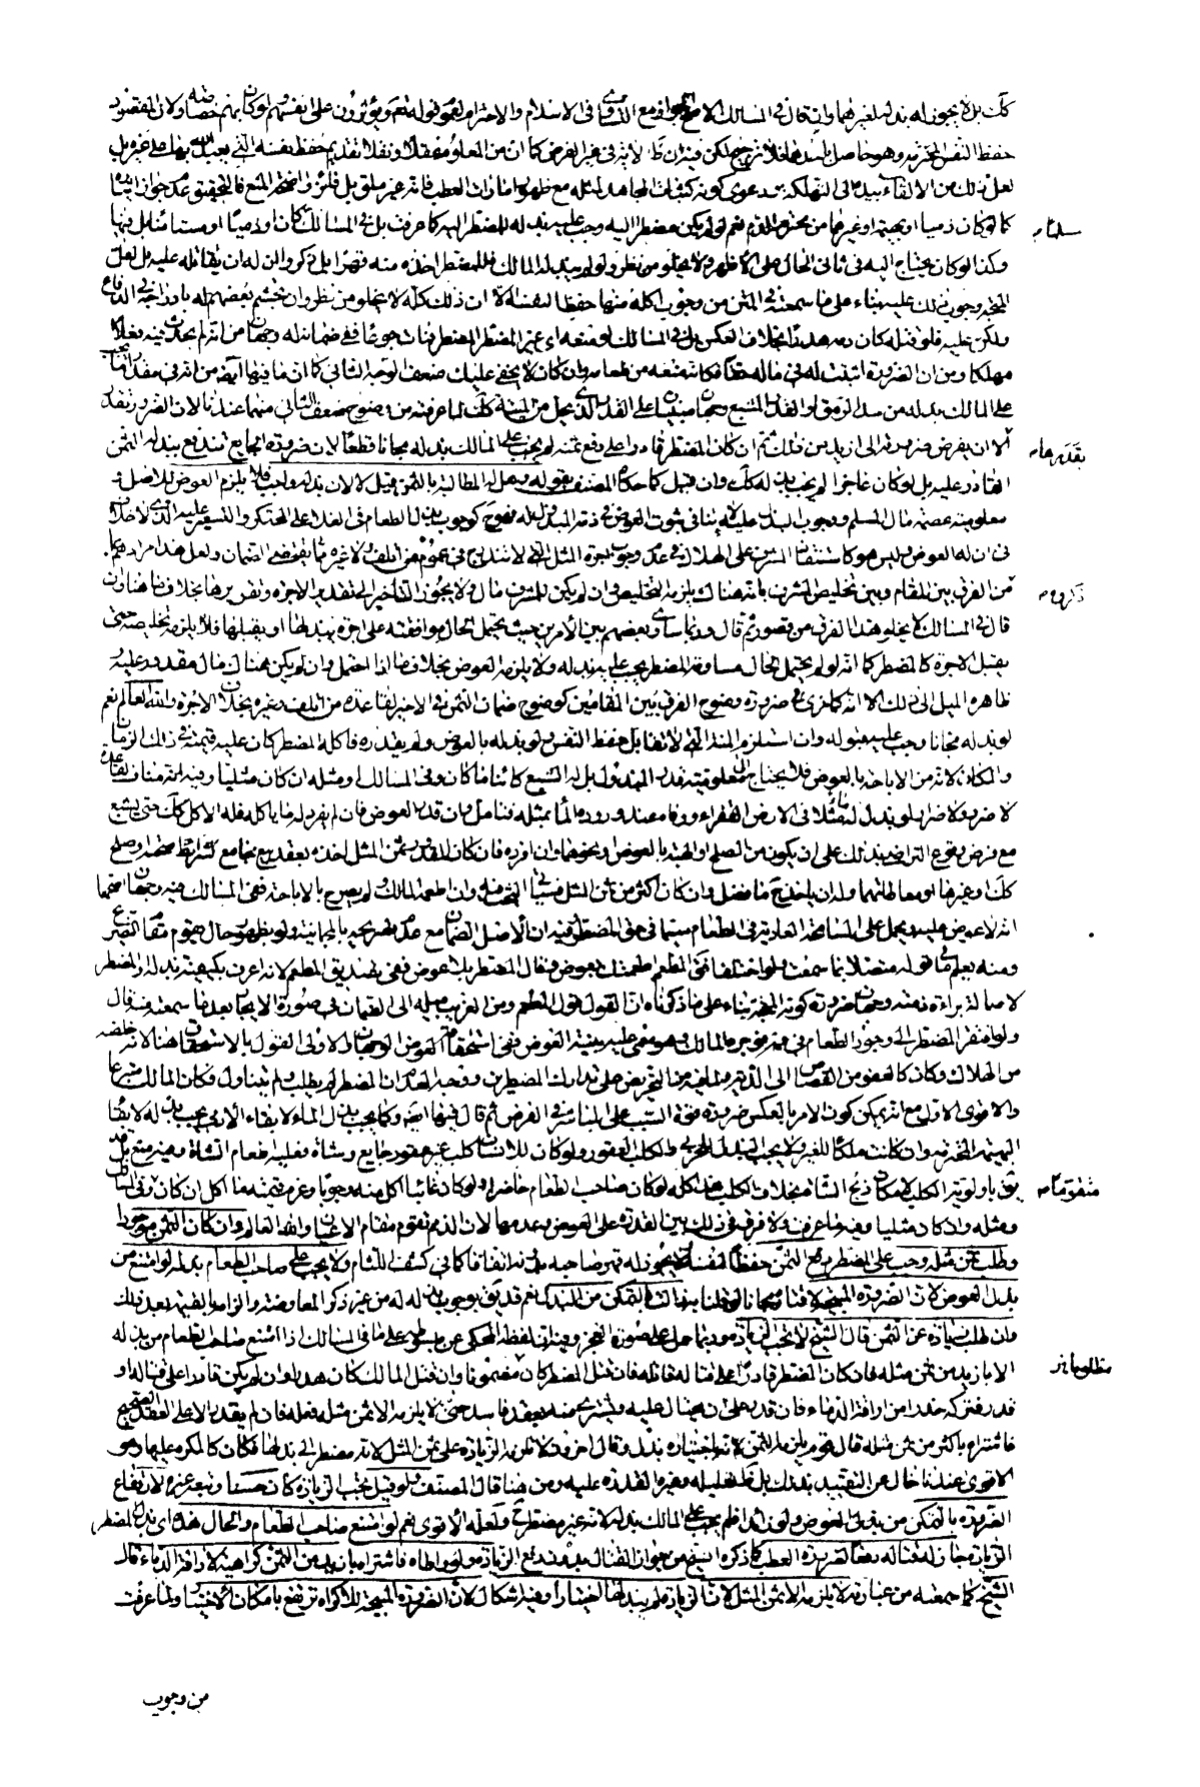 كك بل لا يجوز له بذله لغيرهما وان قال في المسالك الاصح الجواز مع التساوي في الاسلام والاحترام لعموم قوله تعم ويؤثرون على انفسهم ولو كان بهم خصاصة ولان المقصود
حفظ النفس المحترمة وهو حاصل باحدهما فلا ترجيح لكن فيه
لعل ذلك من الالقاء بيده الى التهلكة ودعوى كونه كثبات المجاهد لمثله مع ظهور امارات العطب فانه غير ملق بل فائز واضحة المنع فالتحقيق عدم جواز ايثاره
كما لو كان ذميا او بهيمة او غيرهما من محترم الدم نعم لو لم يكن مضطرا اليه وجب عليه بذله للمضطر اليه كما عرفت بل في المسالك كان او ذميا او مستامنا بل فيها
وكذا لو كان يحتاج اليه في ثاني الحال على الاظهر ولا يخلو من نظر ولو لم يبذله المالك فللمضطر اخذه منه قهرا بل ذكروا ان له ان يقاتله عليه بل لعل
المتجه وجوب ذلك عليه بناء على ما سمعته في المتن من وجوب اكله منها حفظا لنفسه الا ان ذلك كله لا يخلو من نظر وان
ولكن عليه فلو قتله كان دمه هدرا بخلاف العكس بل في المسالك لو منعه اي غير المضطر المضطر فمات جوعا ففي ضمانه له وجهان من انه لم يحدث فيه فعلا
مهلكا ومن ان الضرورة اثبتت له في ماله حقا فكانه منعه من طعامه وان كان لا يخفى عليك ضعف الوجه الثاني كما ان ما فيها ايضا من انه في مقدار ما يجب
على المالك بذله من سد الرمق او القدر المشبع وجهان مبنيان على القدر الذي يحل من الميتة كك لما عرفته من وضوح ضعف الثاني منهما عندنا لان الضرورة تقدر
الا ان يفرض ضرورته الى ازيد من ذلك ثم ان كان المضطر قادرا على دفع ثمنه لم يجب على المالك بذله مجانا قطعا لان ضرورة الجايع تندفع ببذله الثمن
القادر عليه بل لو كان عاجزا لم يجب بذله كك وان قيل كما حكاه المصنف بقوله وهل له المطالبة بالثمن قيل لا لان بذله واجب فلا يلزم العوض للاصل
معلومية عصمة مال المسلم ووجوب البذل عليه لا ينافي ثبوت العوض في ذمة المبذول له فهو ح كوجوب بذل الطعام في الغلاء على المحتكر والتسعير عليه الذي لا خلاف
في ان له العوض وليس هو كاستنقاذ المشرف على الهلاك في عدم وجوب اجرة المثل التي لا تندرج في عموم من اتلف ولا غيره مما يقتضي الضمان ولعل هذا مرادهم
من الفرق بين المقام وبين تخليص المشرف بانه هناك يلزمه التخليص وان لم يكن للمشرف مال ولا يجوز التاخير الى تقدير الاجرة وتقريرها بخلاف ما هنا وان
قال في المسالك لا يخلو هذا الفرق من قصور ثم قال وربما ساوى بعضهم بين الامرين حيث يحتمل الحال موافقته على اجرة يبذلها او يقبلها فلا يلزمه تخليصه حتى
يقبل الاجرة كالمضطر كما انه لو لم يحتمل الحال مساومة المضطر يجب عليه بذله ولا يلزمه العوض بخلاف ما اذا احتمل وان لم يكن هناك مال مقدور عليه
ظاهره الميل الى ذلك الا انه كما ترى ضرورة وضوح الفرق بين المقامين كوضوح ضمان الثمن في الاخير لقاعدة من اتلف وغيره بخلاف الاجرة والله العالم نعم
لو بذله مجانا وجب عليه قبوله وان استلزم المنة التي لا تقابل حفظ النفس ولو بذله بالعوض ولم يقدره فاكله المضطر كان عليه قيمته في ذلك الزمان
والمكان لانه من الاباحة بالعوض فلا يحتاج الى معلومية قدر المبذول بل له الشبع كائنا ما كان وفي المسالك او مثله ان كان مثليا وفيه انه مناف لقاعدة
لا ضرر ولا ضرار لو بذل له مثلا في الارض القفراء ورده الماء بمثله فتامل وان قدر العوض فان لم يفرد له ما ياكله فله الاكل كك حتى يشبع
مع فرض وقوع التراضي بذلك على ان يكون من الصلح او الهبة بالعوض او نحوهما وان افرده فان كان المقدر ثمن المثل اخذه بعقد بيع جامع لشرائط صحته او صلح
كك او غيرهما او معاملتهما وله ان ياخذ ح ما فضل وان كان اكثر من ثمن المثل وان اطعمه المالك ولم يصرح بالاباحة ففي المسالك فيه وجهان اصحهما
انه لا عوض عليه ويحمل على المسامحة المعتادة في الطعام سيما في حق المضطر وفيه ان الاصل الضمان مع عدم تصريحه بالمجانية ولو بظهور حال يقوم مقام التصريح
ومنه يعلم ما في قوله متصلا بما سمعت ولو اختلفا فقال المطعم اطعمتك بعوض وقال المضطر بلا عوض ففي تصديق المطعم لانه اعرف بكيفية بذله او المضطر
لاصالة براءة ذمته وجهان ضرورة كون المتجه بناء على ما ذكرناه ان القول قول المطعم ومن الغريب ميله الى الضمان في صورة الايجار بعد ما سمعته منه قال
ولو افتقر المضطر الى وجود الطعام في فمه فوجره المالك وهو مغمى عليه بنية العوض ففي استحقاقه العوض الوجهان والاولى القول بالاستحقاق هنا لانه خلصه
من الهلاك وكان كالعفو من القصاص الى الدية ولما فيه من التحريض على تدارك المضطرين ووجه العدم ان المضطر لم يطلب ولم يتناول فكان المالك متبرعا
والاقوى الاول مع انه يمكن كون الامر بالعكس ضرورة قوة السبب على المباشر في الفرض ثم قال فيها ايضا وكما يجب بذل المال لابقاء الادمي يجب بذله لابقاء
البهيمة المحترمة وان كانت ملكا للغير ولا يجب البذل للحربي والكلب العقور ولو كان للانسان كلب غير عقور جايع وشاة فعليه اطعام الشاة وفيه منع بل قد
يق باولوية الكلب لامكان ذبح الشاة بخلاف الكلب هذا كله لو كان صاحب الطعام حاضرا ولو كان غائبا اكل منه وجوبا وغرم قيمته ما اكل ان كان وفي المسالك
ومثله ان كان مثليا وفيه ما عرفت ولا فرق في ذلك بين القدرة على العوض وعدمها لان الذمم تقوم مقام الاعيان والله العالم وان كان الثمن موجودا
وطلب ثمن مثله وجب على المضطر دفع الثمن حفظا لنفسه ولا يجوز له قهر صاحبه عليه اتفاقا كما في كشف اللثام ولا يجب على صاحب الطعام بذله لو امتنع من
بذل العوض لان الضرورة المبيحة لاقتساره مجانا زالت بالتمكن من البذل نعم قد يق بوجوب بذله له من غير ذكر المعاوضة والزامه بالقيمة بعد ذلك
وان طلب زيادة عن الثمن قال الشيخ لا تجب الزيادة وربما حمل على صورة العجز وفيه ان لفظه المحكي عن مبسوطه على ما في المسالك اذا امتنع صاحب الطعام من بذله
الا بازيد من ثمن مثله فان كان المضطر قادرا على قتاله قاتله فان قتل المضطر كان مضمونا وان قتل المالك كان هدرا وان لم يكن قادرا على قتاله او
قدر فتركه حذرا من اراقة الدماء فان قدر على ان يحتال عليه ويشتريه منه بعقد فاسد حتى لا يلزمه الا ثمن مثله فعله فان لم يقدر الا على العقد الصحيح
فاشتراه باكثر من ثمن مثله قال قوم يلزمه الثمن لانه باختياره بذل وقال اخرون لا تلزمه الزيادة على ثمن المثل لانه مضطر الى بذلها فكان كالمكره عليها وهو
الاقوى عندنا خال عن التقييد بذلك بل ظاهر تعليله وغيره القدرة عليه ومن هنا قال المصنف ولو قيل تجب الزيادة كان حسنا وتبعه غيره لارتفاع
الضرورة بالتمكن من بذل العوض ولو زائدا فلم يجب على المالك بذله لانه غير مضطر ح ولعله الاقوى نعم لو امتنع صاحب الطعام والحال هذه اي بذل المضطر
الزيادة جاز له قتاله دفعا لضرورة العطب كما ذكره الشيخ من جواز القتال بدون دفع الزيادة ولو واطاه فاشتراه بازيد من الثمن كراهية لاراقة الدماء قال
الشيخ كما سمعته من عبارته لا يلزمه الا ثمن المثل لان الزيادة لم يبذلها اختيارا وفيه اشكال لان الضرورة المبيحة للاكراه ترتفع بامكان الاختيار ولما عرفت
من وجوب
مسلما
بقدرها
متقوما